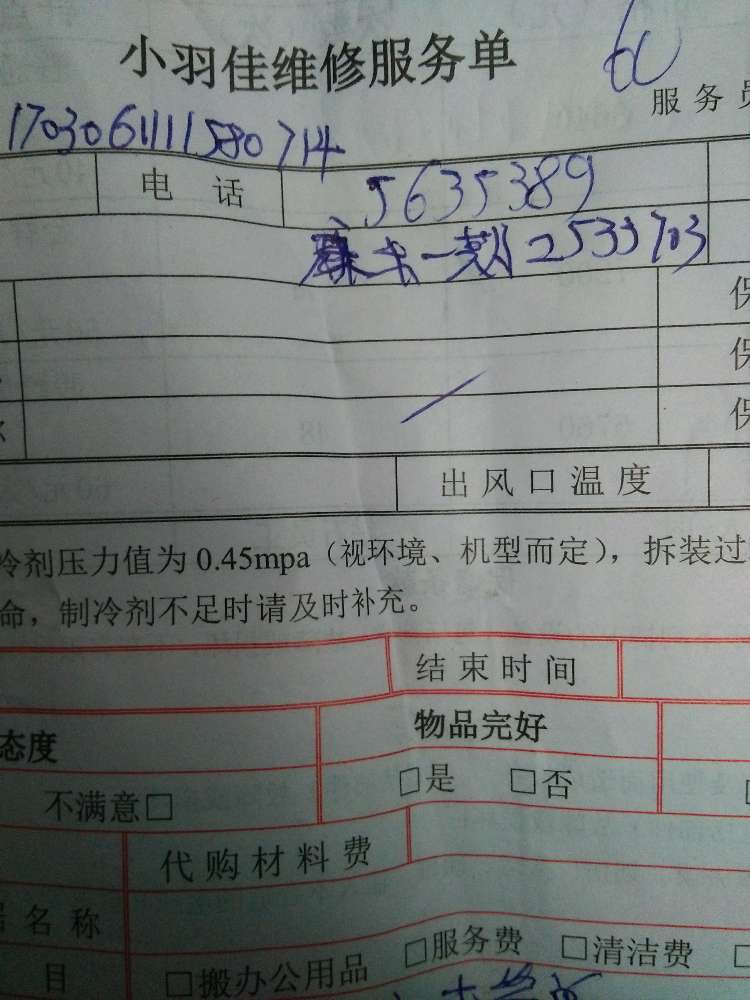 小羽佳维修服务单
服务员
1703061111580714
电话 5635389
一刻 2533703
保
保
保
出风口温度
冷剂压力值为0.45mpa（视环境、机型而定），拆装过
命，制冷剂不足时请及时补充。
结束时间
态度 物品完好
不满意□ □是 □否
代购材料费
名称
目 □搬办公用品 □服务费 □清洁费 □